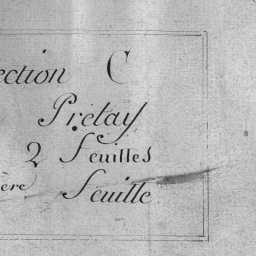 ection C
Prélay
2 feuilles
ère feuille